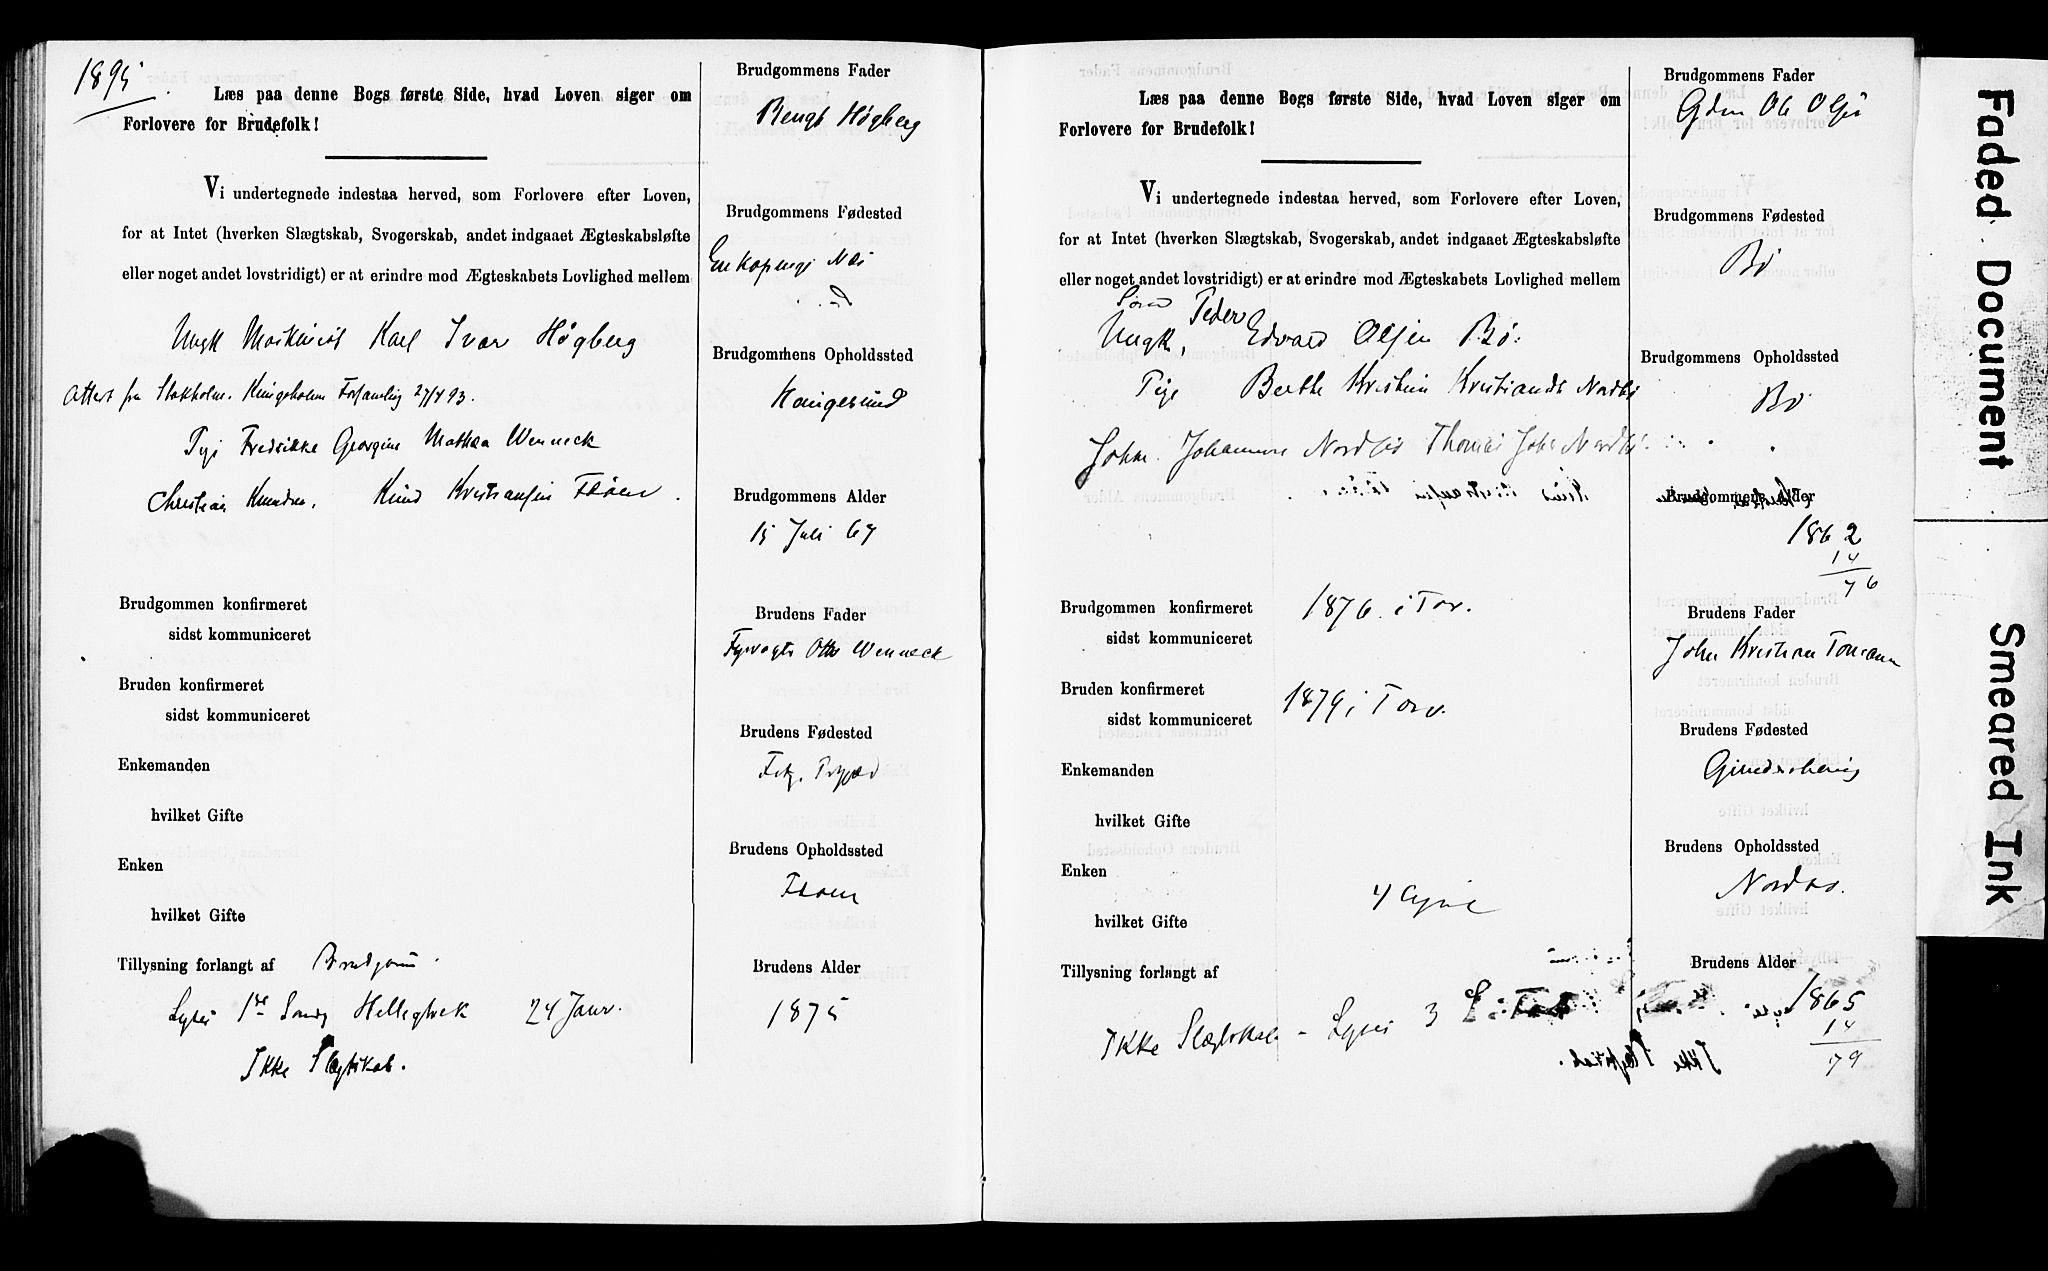 1895
Læs paa denne Bogs første Side, hvad Loven siger om
Forlovere for Brudefolk!
Vi undertegnede indestaa herved, som Forlovere efter Loven,
for at Intet (hverken Slægtskab, Svogerskab, andet indgaaet Ægteskabsløfte
eller noget andet lovstridigt) er at erindre mod Ægteskabets Lovlighed mellem
Ungk Maskinist Karl Ivar Högberg
Attest fra Stokholm. Kungsholm Forsamling 27/4 93.
Pige Fredrikke Georgine Mathea Wenneck
Christian Knudsen. Knud Kristiansen
Brudgommen konfirmeret
sidst kommuniceret
Bruden konfirmeret
sidst kommuniceret
Enkemanden
hvilket Gifte
Enken
hvilket Gifte
Tillysning forlangt af Brudgom
Lyses 1ste 24 Janr.
Ikke Slægtskab.
Brudgommens Fader
Bengt Högberg
Brudgommens Fødested
Enkopings Næs
Brudgommens Opholdssted
Haugesund
Brudgommens Alder
15 Juli 67
Brudens Fader
Fyrvogter Otto Wenneck
Brudens Fødested
Brudens Opholdssted
Brudens Alder
1875
Læs paa denne Bogs første Side, hvad Loven siger om
Forlovere for Brudefolk!
Vi undertegnede indestaa herved, som Forlovere efter Loven,
for at Intet (hverken Slægtskab, Svogerskab, andet indgaaet Ægteskabsløfte
eller noget andet lovstridigt) er at erindre mod Ægteskabets Lovlighed mellem
Peder
Ungk, Edvard Olsen Bø.
Pige Berthe Kristine Nordbø
Johan Johannesen Nordbø Thomas Johs Nordbø.
Brudgommen konfirmeret 1876 i Tor.
sidst kommuniceret
Bruden konfirmeret 1879 i Torv.
sidst kommuniceret
Enkemanden
hvilket Gifte
Enken
hvilket Gifte
Tillysning forlangt af
Ikke Slægtskab - Lyses 3
Brudgommens Fader
Gdm Ole Olsen
Brudgommens Fødested
Bø
Brudgommens Opholdssted
Bø
Brudgommens Alder
1862
14
76
Brudens Fader
John Kristian
Brudens Fødested
Brudens Opholdssted
Nordbø.
Brudens Alder
1865
14
79
Faded Document
Smeared Ink